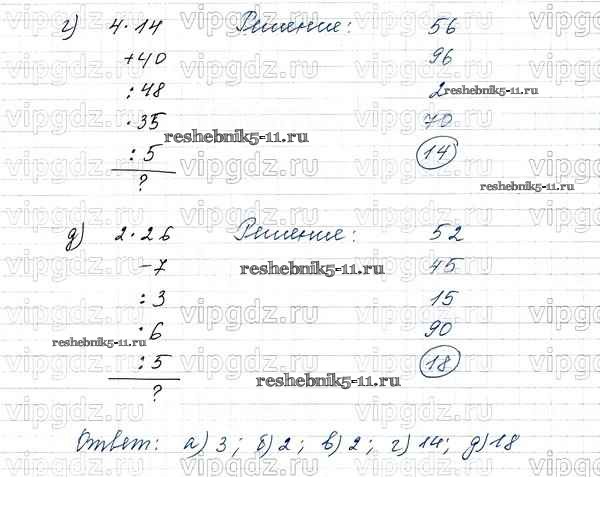 г) 4·14 Решение: 56
+40 96
:48 2
·35 70
:5 14
?
д) 2·26 Решение: 52
-7 45
:3 15
:6 90
:5 18
?
Ответ: а) 3; б) 2; в) 2; г) 14; д) 18
vipgdz.ru
reshebnik5-11.ru